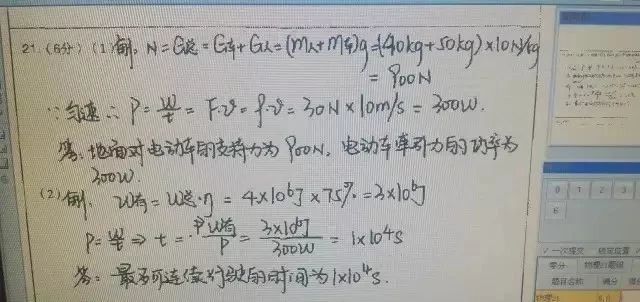 21.(6分)(1)解, N=G总=G车+G人=(m人+m车)g=(40kg+50kg)×10N/kg
=900N
∵匀速∴P=W/t=F·v=f·v=30N×10m/s=300W.
答:地面对电动车的支持力为900N,电动车牵引力的功率为
300W.
(2)解, W有=W总·η=4×10⁶J×75%=3×10⁶J
P=W/t⇒t=W有/P=3×10⁶J/300W=1×10⁴s
答:最多可连续行驶的时间为1×10⁴s.
0 1 2 3
6
一次提交
零分
题目名称 满分